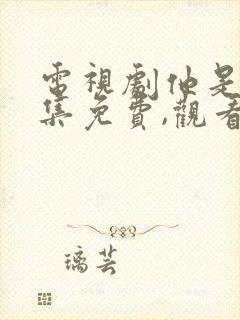 電視劇他是
集免費,觀看
璃芸